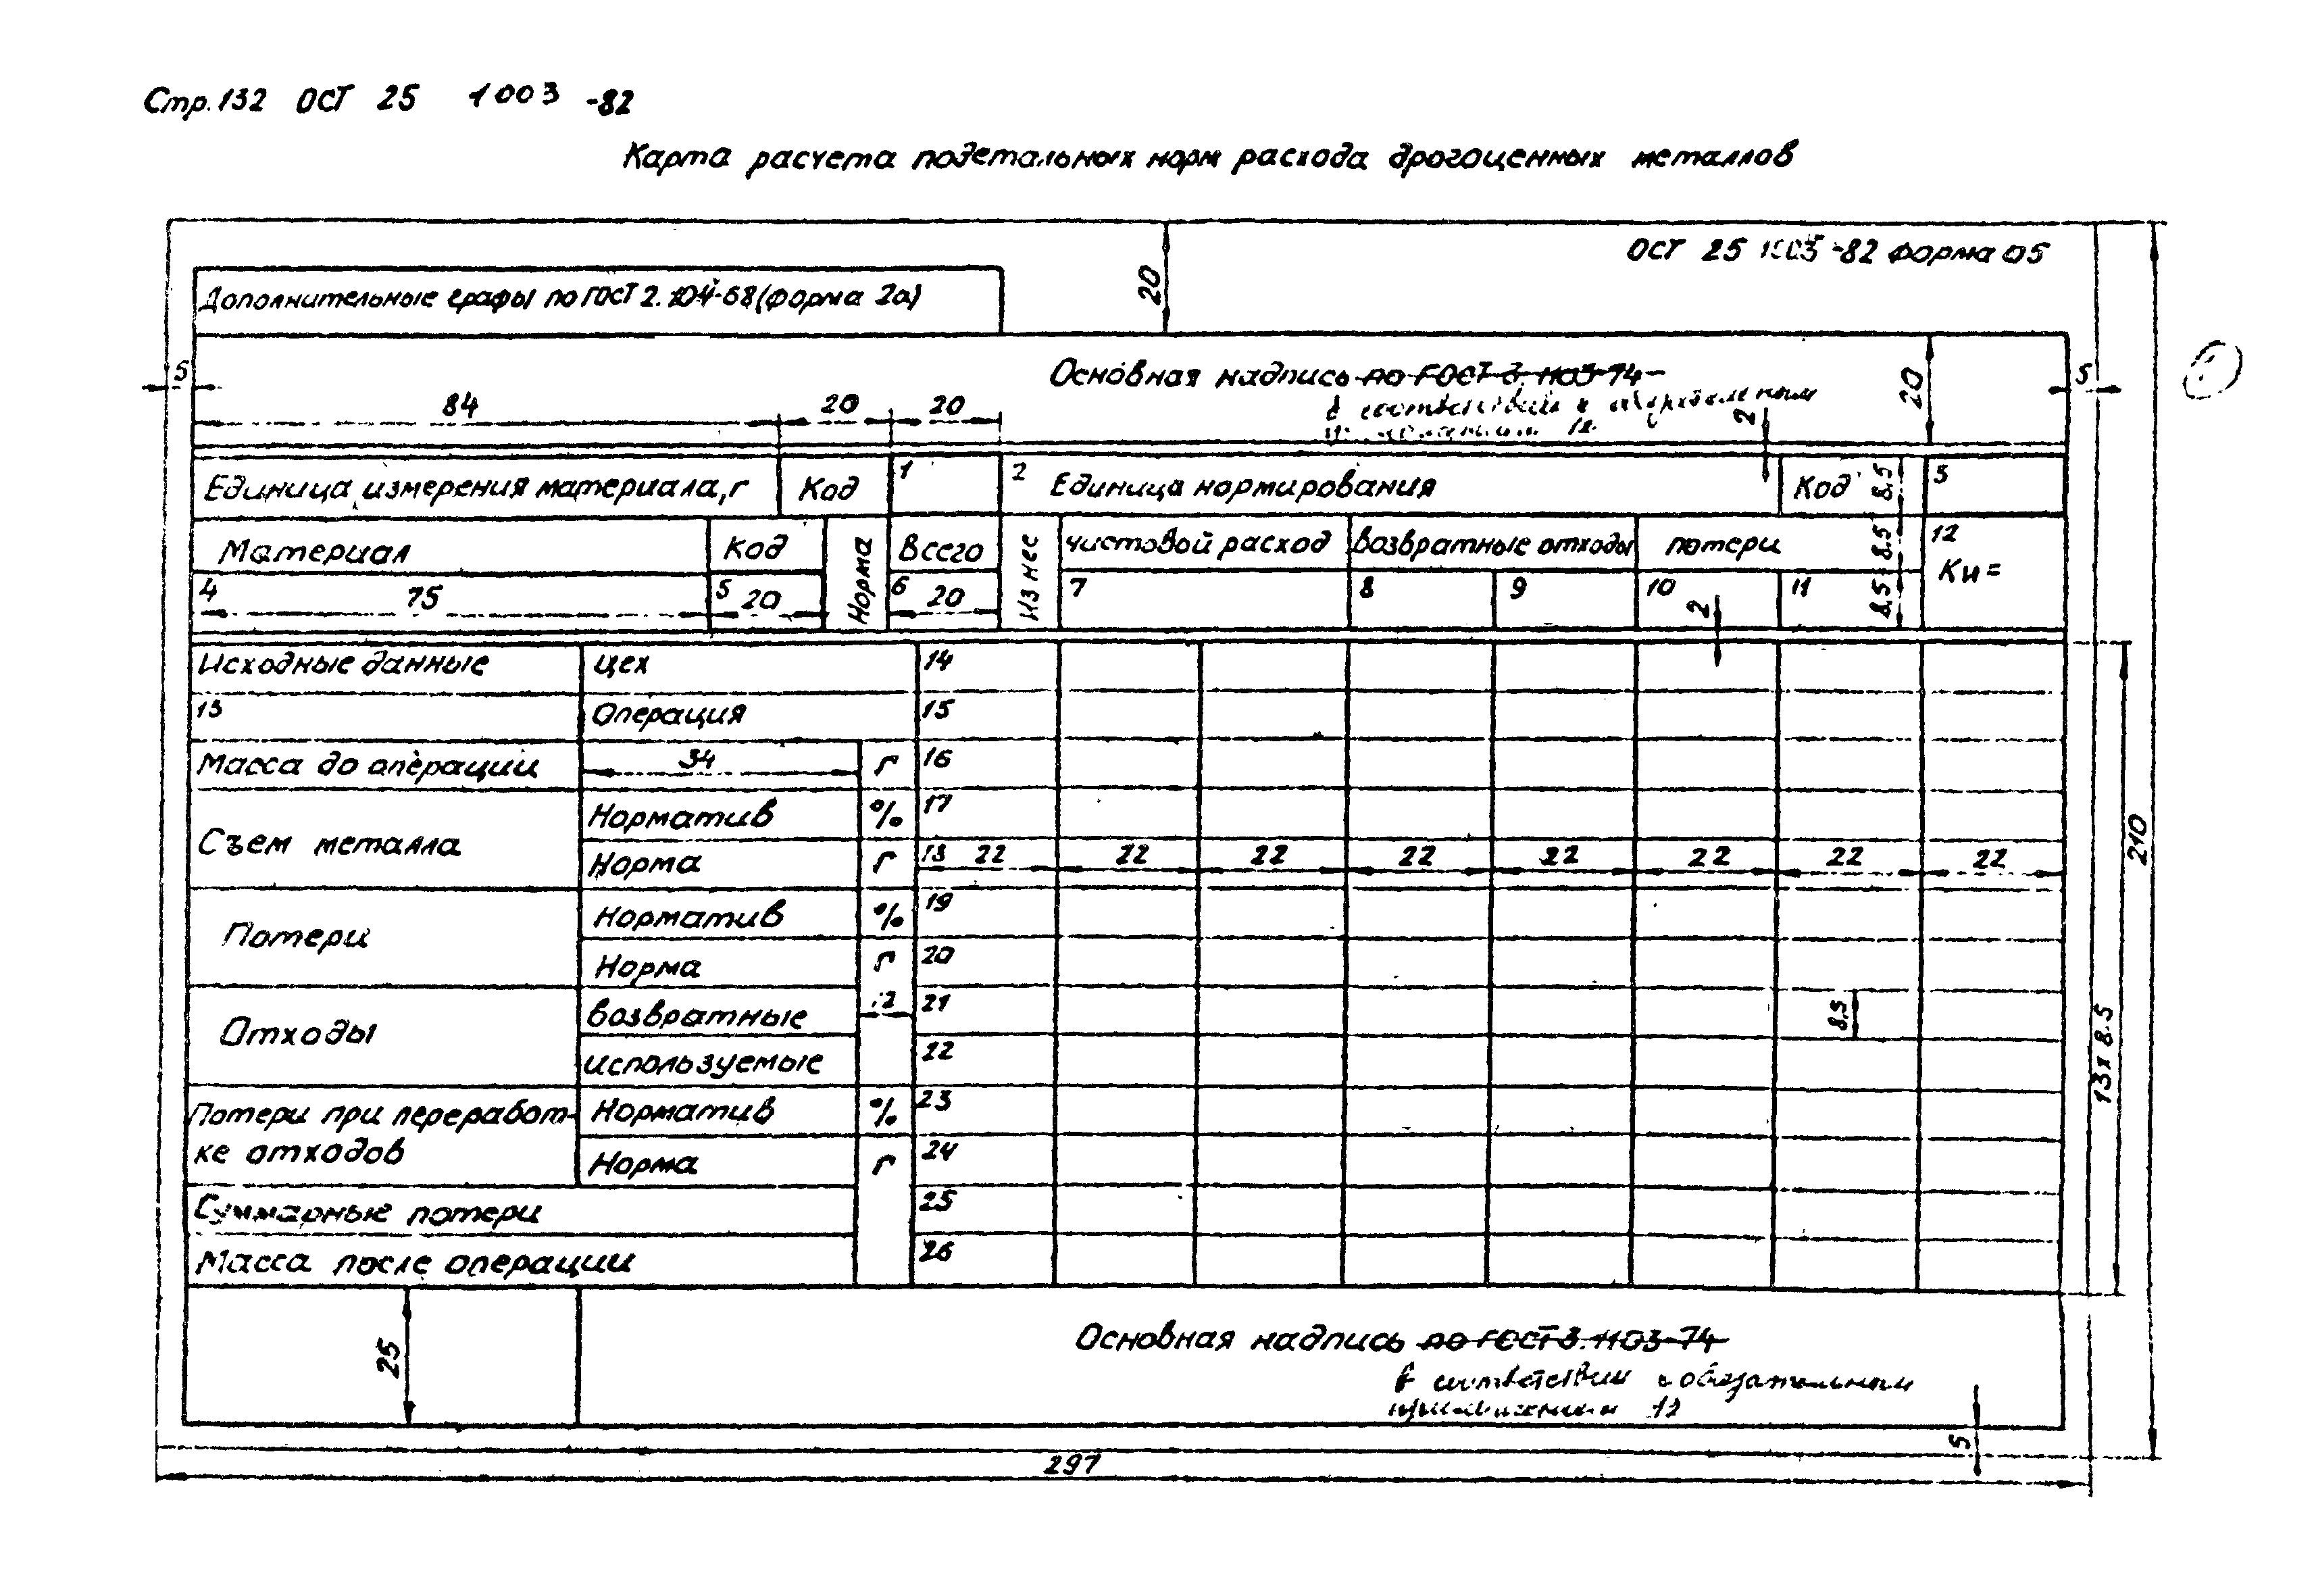 Стр.132 ОСТ 25 1003 -82
Карта расчета подетальных норм расхода драгоценных металлов
ОСТ 25 1003 -82 форма 05
Дополнительные графы по ГОСТ 2.104-68 (форма 2а)
20
Основная надпись по ГОСТ 3.1103-74
в соответствии с обязательным
приложением 12
5
84
20
20
2
20
5
Единица измерения материала, г
Код
1
2 Единица нормирования
Код
8,5
3
Материал
Код
Норма
Всего
Из нес
чистовой расход
возвратные отходы
потери
8,5
12
Ки =
4
75
5
20
6
20
7
8
9
10
2
11
8,5
Исходные данные
цех
14
13
Операция
15
Масса до операции
34
г
16
Съем металла
Норматив
%
17
Норма
г
18
22
22
22
22
22
22
22
22
210
Потери
Норматив
%
19
Норма
г
20
Отходы
возвратные
12
21
8,5
используемые
22
13 х 8.5
Потери при переработ-
ке отходов
Норматив
%
23
Норма
г
24
Суммарные потери
25
Масса после операции
26
25
Основная надпись по ГОСТ 3.1103-74
в соответствии с обязательным
приложением 12
5
297